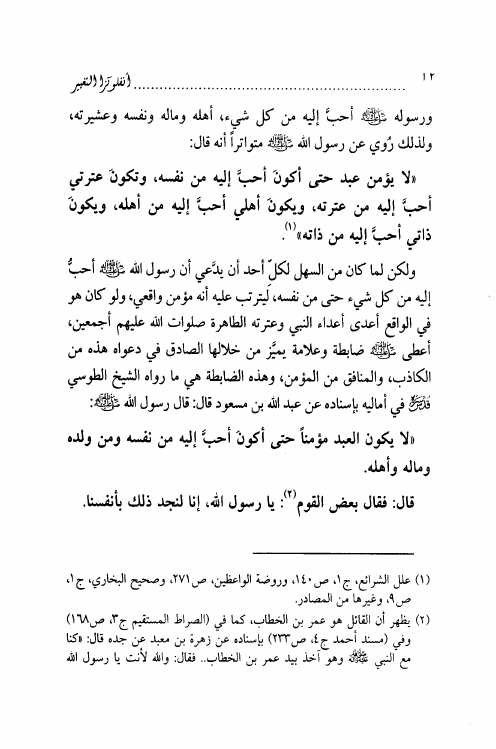 ١٢ ........ أنفلونزا التغيير
ورسوله ﷺ أحبَّ إليه من كل شيء، أهله وماله ونفسه وعشيرته،
ولذلك رُوي عن رسول الله ﷺ متواتراً أنه قال:
«لا يؤمن عبد حتى أكونَ أحبَّ إليه من نفسه، وتكونَ عترتي
أحبَّ إليه من عترته، ويكونَ أهلي أحبَّ إليه من أهله، ويكونَ
ذاتي أحبَّ إليه من ذاته»(١).
ولكن لما كان من السهل لكلّ أحد أن يدَّعي أن رسول الله ﷺ أحبُّ
إليه من كل شيء حتى من نفسه، لِيترتب عليه أنه مؤمن واقعي، ولو كان هو
في الواقع أعدى أعداء النبي وعترته الطاهرة صلوات الله عليهم أجمعين،
أعطى ﷺ ضابطة وعلامة يميَّز من خلالها الصادق في دعواه هذه من
الكاذب، والمنافق من المؤمن، وهذه الضابطة هي ما رواه الشيخ الطوسي
في أماليه بإسناده عن عبد الله بن مسعود قال: قال رسول الله ﷺ:
«لا يكون العبد مؤمناً حتى أكونَ أحبَّ إليه من نفسه ومن ولده
وماله وأهله.
قال: فقال بعض القوم(٢): يا رسول الله، إنا لنجد ذلك بأنفسنا.
(١) علل الشرائع، ج١، ص١٤٠، وروضة الواعظين، ص٢٧١، وصحيح البخاري، ج١،
ص٩، وغيرها من المصادر.
(٢) يظهر أن القائل هو عمر بن الخطاب، كما في (الصراط المستقيم ج٣، ص١٦٨)
وفي (مسند أحمد ج٤، ص٢٣٣) بإسناده عن زهرة بن معبد عن جده قال: «كنا
مع النبي ﷺ وهو آخذ بيد عمر بن الخطاب.. فقال: والله لأنت يا رسول الله